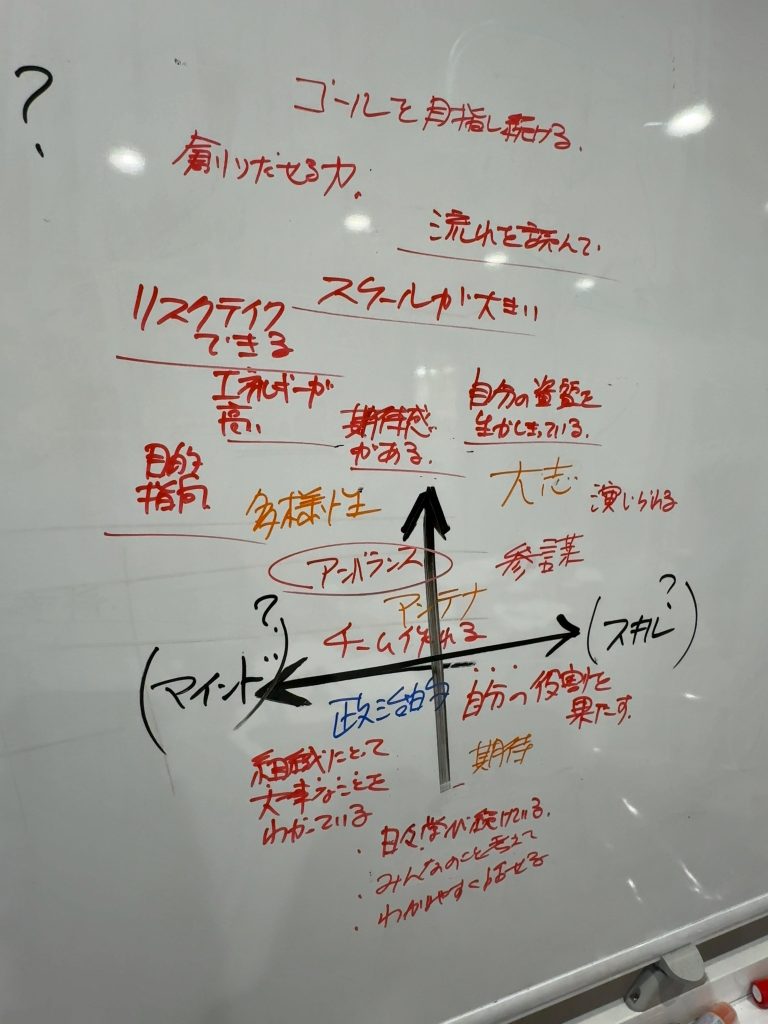 ?
ゴールを目指し続ける.
創りだせる力.
流れを読んで.
スケールが大きい
リスクテイク
できる
エネルギーが
高い
自分の資質を
生かしきっている.
期待感
がある.
目的
指向
大志
多様性
演じられる
アンバランス
参謀
アンテナ
?
?
チーム作れる
(スキル)
(マインド)
政治的
自分の役割を
果たす.
期待
組織にとって
大事なことを
わかっている
・日々学び続けている.
・みんなのこと考えて
・わかりやすく話せる